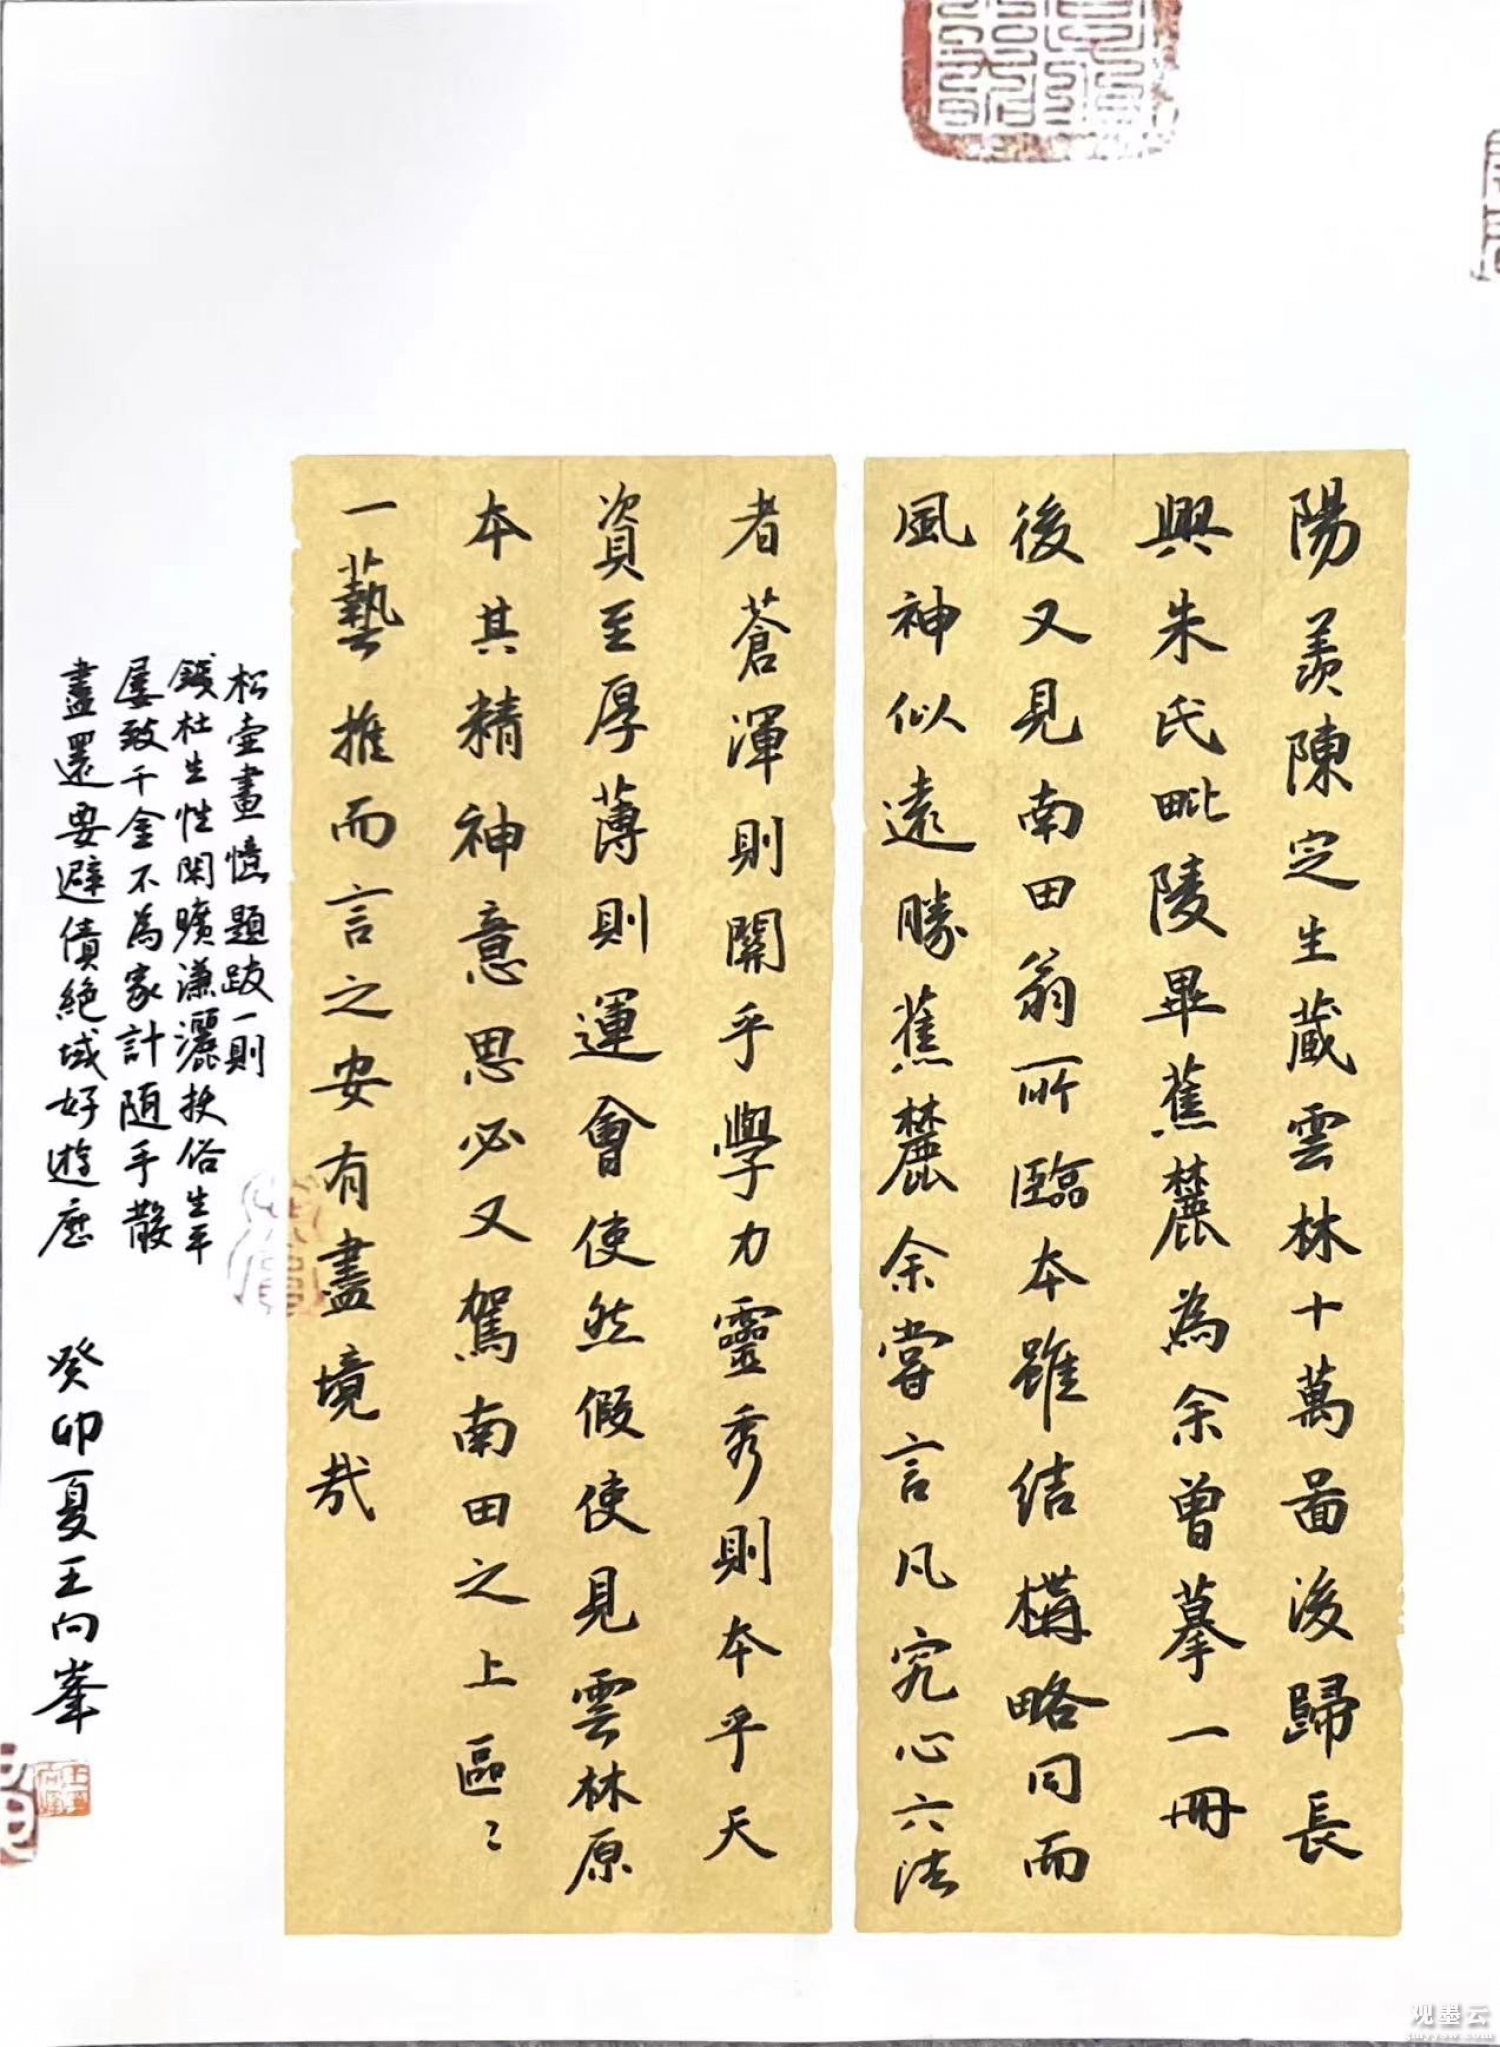 陽羨陳定生藏雲林十萬畐後歸長
興朱氏毗陵畢蕉麓為余曾摹一冊
後又見南田翁所臨本雖结構略同而
風神似遠勝蕉麓余嘗言凡究心六法
者蒼渾則關乎學力靈秀則本乎天
資至厚薄則運會使然假使見雲林原
本其精神意思必又駕南田之上區〻
一藝推而言之安有盡境哉
松壺畫憶題跋一則
錢杜生性閑曠瀟灑拔俗生平
屢致千金不為家計随手散
盡還要避債絕域好遊歷
癸卯夏王向峯
观墨云